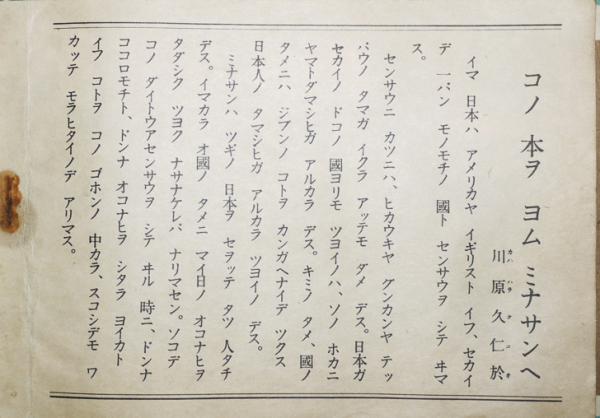 コノ 本ヲ ヨム ミナサンヘ
川原久仁於
カハ ハラ ク ニ オ
イマ 日本ハ アメリカヤ イギリスト イフ、セカイ
デ 一バン モノモチノ 國ト センサウヲ シテ ヰマ
ス。
センサウニ カツニハ、ヒカウキヤ グンカンヤ テッ
パウノ タマガ イクラ アッテモ ダメ デス。日本ガ
セカイノ ドコノ 國ヨリモ ツヨイノハ、ソノ ホカニ
ヤマトダマシヒガ アルカラ デス。キミノ タメ、國ノ
タメニハ ジブンノ コトヲ カンガヘナイデ ツクス
日本人ノ タマシヒガ アルカラ ツヨイノ デス。
ミナサンハ ツギノ 日本ヲ セヲッテ タツ 人タチ
デス。イマカラ オ國ノ タメニ マイ日ノ オコナヒヲ
タダシク ツヨク ナサナケレバ ナリマセン。ソコデ
コノ ダイトウアセンサウヲ シテ ヰル 時ニ、ドンナ
ココロモチト、ドンナ オコナヒヲ シタラ ヨイカト
イフ コトヲ コノ ゴホンノ 中カラ、スコシデモ ワ
カッテ モラヒタイノデ アリマス。